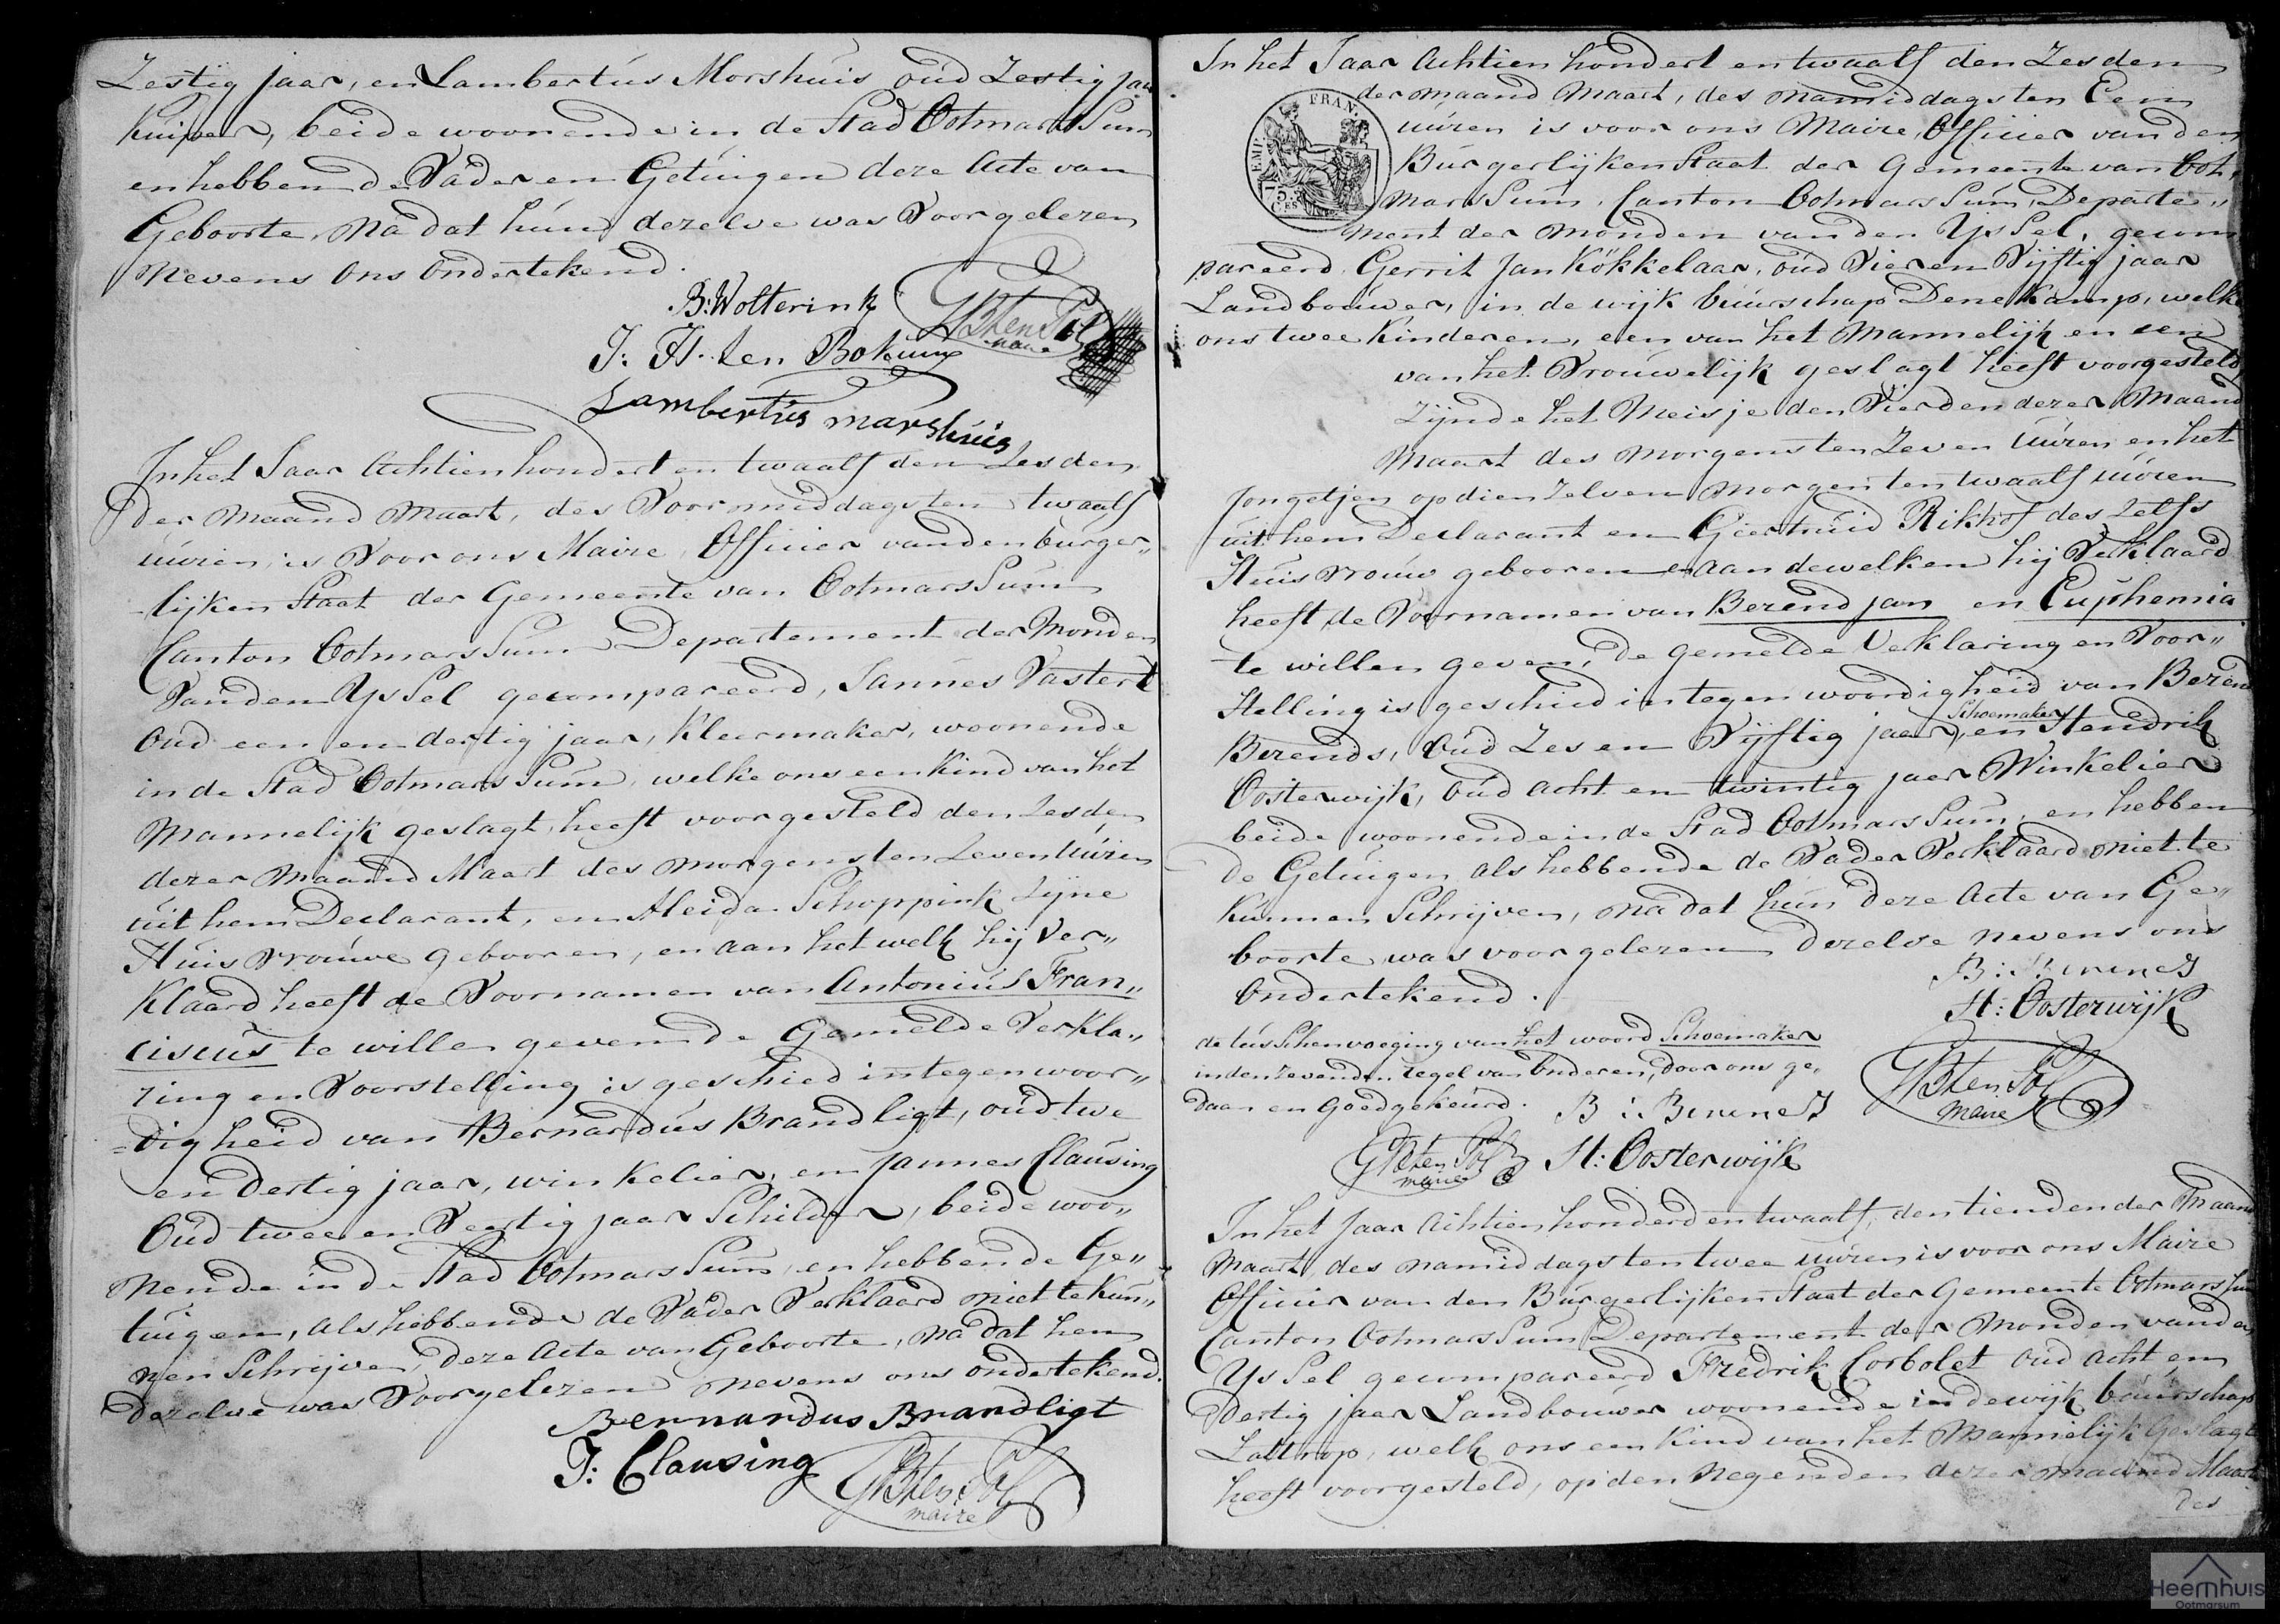 Zestig jaar, en Lambertus Morshuis oud Zestig jaar
Kuiper, beide woonende in de Stad OotmarsSum
en hebben de Vader en Getuigen deze Acte van
Geboorte, na dat hun dezelve was Voorgelezen
Nevens Ons Ondertekend.
B: Wolterink
GB ten Pol
maire
J: H. ten Bokum
Lambertus marshuis
In het Jaar Achtien hondert en twaalf den Zesden
der maand maart, des Voormiddags ten twaalf
uuren, is Voor ons Maire, Officier van den burger„
lijken Staat der Gemeente van OotmarsSum
Canton OotmarsSum Departement der Monden
Van den YsSel gecompareerd, Jannes Vastert
Oud een en dertig jaar, Kleermaker, woonende
in de Stad OotmarsSum, welke ons een Kind van het
Mannelijk geslagt, heeft voorgesteld den Zesden
dezer maand Maart des morgens ten Zeven Uuren
uit hem Declarant, en Aleida Schoppink Zijne
Huis Vrouwe gebooren, en aan het welk hij Ver„
Klaard heeft de Voornamen van Antonius Fran„
ciscus te willen geven de Gemelde Verkla„
ring en Voorstelling is geschied in tegenwoor„
digheid van Bernardus Brandligt, oud twe
en dertig jaar, winkelier, en Jannes Clausing
Oud twee en Veertig jaar Schilder, beide woo„
nende in de Stad OotmarsSum, en hebben de Ge„
tuigen, als hebbende de Vader Verklaard niet te Kun„
nen Schrijven, deze Acte van Geboorte, na dat hen
dezelve was Voorgelezen nevens ons ondertekend.
Bernardus Brandligt
J: Clausing
GB ten Pol
maire
In het Jaar Achtien hondert en twaalf den Zesden
der maand Maart, des namiddags ten Een
uuren is voor ons Maire, Officier van den
Burgerlijken Staat der Gemeente van Oot„
marsSum, Canton OotmarsSum, Departe„
ment der Monden van den YsSel, gecom
pareerd Gerrit Jan Kökkelaar, oud Vier en Vijftig jaar
Landbouwer, in de wijk buurschap Denekamp, welke
ons twee Kinderen, een van het Mannelijk en een
van het Vrouwelijk geslagt heeft voorgesteld,
Zijnde het Meisje den Vierden dezer Maand
Maart des morgens ten Zeven Uuren en het
Jongetjen op dien Zelven morgen ten twaalf uuren
uit hem Declarant en Geertruid Rikhof des Zelfs
Huisvrouw gebooren en aan dewelken hij Verklaard
heeft de Voornamen van Berend jan en Euphemia
te willen geven, de gemelde Verklaring en Voor„
Stelling is geschied in tegenwoordigheid van Berend
Schoemaker
Berends, Oud Zes en Vijftig jaar, en Hendrik
Oosterwijk, Oud acht en twintig jaar Winkelier
beide woonende in de Stad OotmarsSum, en hebben
de Getuigen als hebbende de Vader Verklaard niet te
Kunnen Schrijven, na dat hun deze Acte van Ge„
boorte was voorgelezen dezelve nevens ons
Ondertekend.
H: Oosterwijk
de tusSchenvoeging van het woord Schoemaker
in den zevenden regel van Onderen, door ons ge„
daan en Goedgekeurd.
GB ten Pol
maire
GB ten Pol
maire
H: Oosterwijk
In het Jaar Achtien honderd en twaalf, den tienden der Maand
Maart, des namiddags ten twee uuren is voor ons Maire
Officier van den Burgerlijken Staat der Gemeente Ootmarshum
Canton OotmarsSum Departement der Monden van den
YsSel gecompareerd Fredrik Corbolet oud Acht en
Dertig jaar Landbouwer woonende in de wijk buurschap
Lattrop, welk ons een Kind van het Mannelijk Geslagt
heeft voorgesteld, op den Negenden dezer maand Maart
des
EMP. FRAN.
75
CES
Heemhuis
Ootmarsum